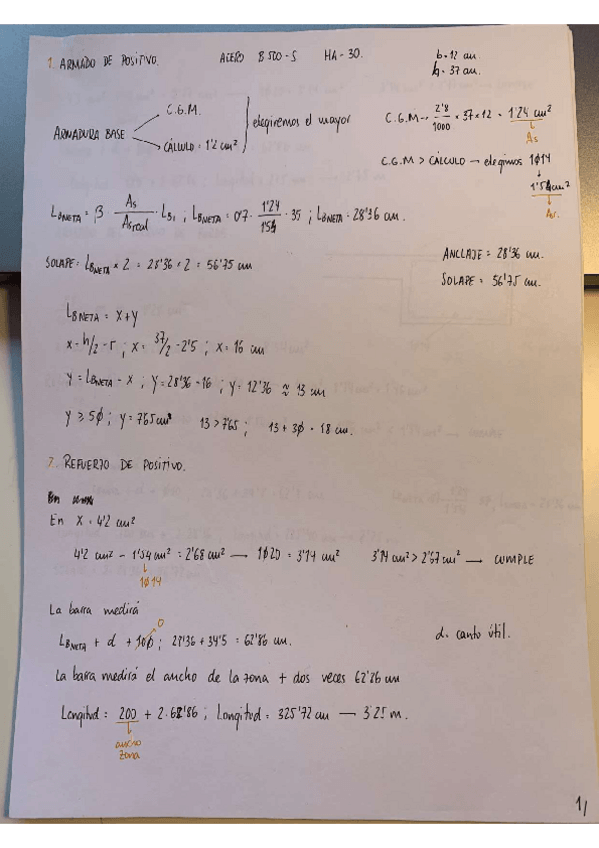 1. ARMADO DE POSITIVO. ACERO B 500-S HA-30. b=12 cm
h=37 cm.
C.G.M.
ARMADURA BASE elegiremos el mayor C.G.M → 2'8/1000 × 37×12 = 1'24 cm²
CÁLCULO = 1'2 cm² As
C.G.M > CÁLCULO → elegimos 1Ø14
1'54cm²
As.
LBNETA = β · As/Asreal · Lb1 ; LBNETA = 0'7 · 1'24/1'54 · 35 ; LBNETA = 28'36 cm.
ANCLAJE = 28'36 cm.
SOLAPE = LBNETA × 2 = 28'36 × 2 = 56'75 cm
SOLAPE = 56'75 cm.
LBNETA = x+y
x = h/2 - r ; x = 37/2 - 2'5 ; x = 16 cm
y = LBNETA - x ; y = 28'36 - 16 ; y = 12'36 ≈ 13 cm
y ≥ 5Ø ; y = 7'65 cm² 13 > 7'65 ; 13 + 3Ø = 18 cm.
7. REFUERZO DE POSITIVO.
En X = 4'2 cm²
4'2 cm² - 1'54 cm² = 2'68 cm² → 1Ø20 = 3'14 cm² 3'14 cm² > 2'67 cm² → CUMPLE
1Ø14
La barra medirá
0
LBNETA + d + 10Ø ; 28'36 + 34'5 = 62'86 cm. d = canto útil.
La barra medirá el ancho de la zona + dos veces 62'86 cm
Longitud = 200 + 2·62'86 ; Longitud = 325'72 cm → 3'25 m.
ancho
zona
1/